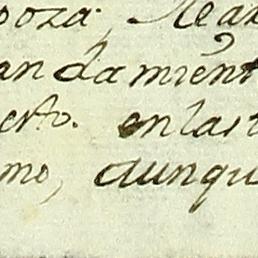 poza; Rea
andamient
erto. en las
mo, aunqu